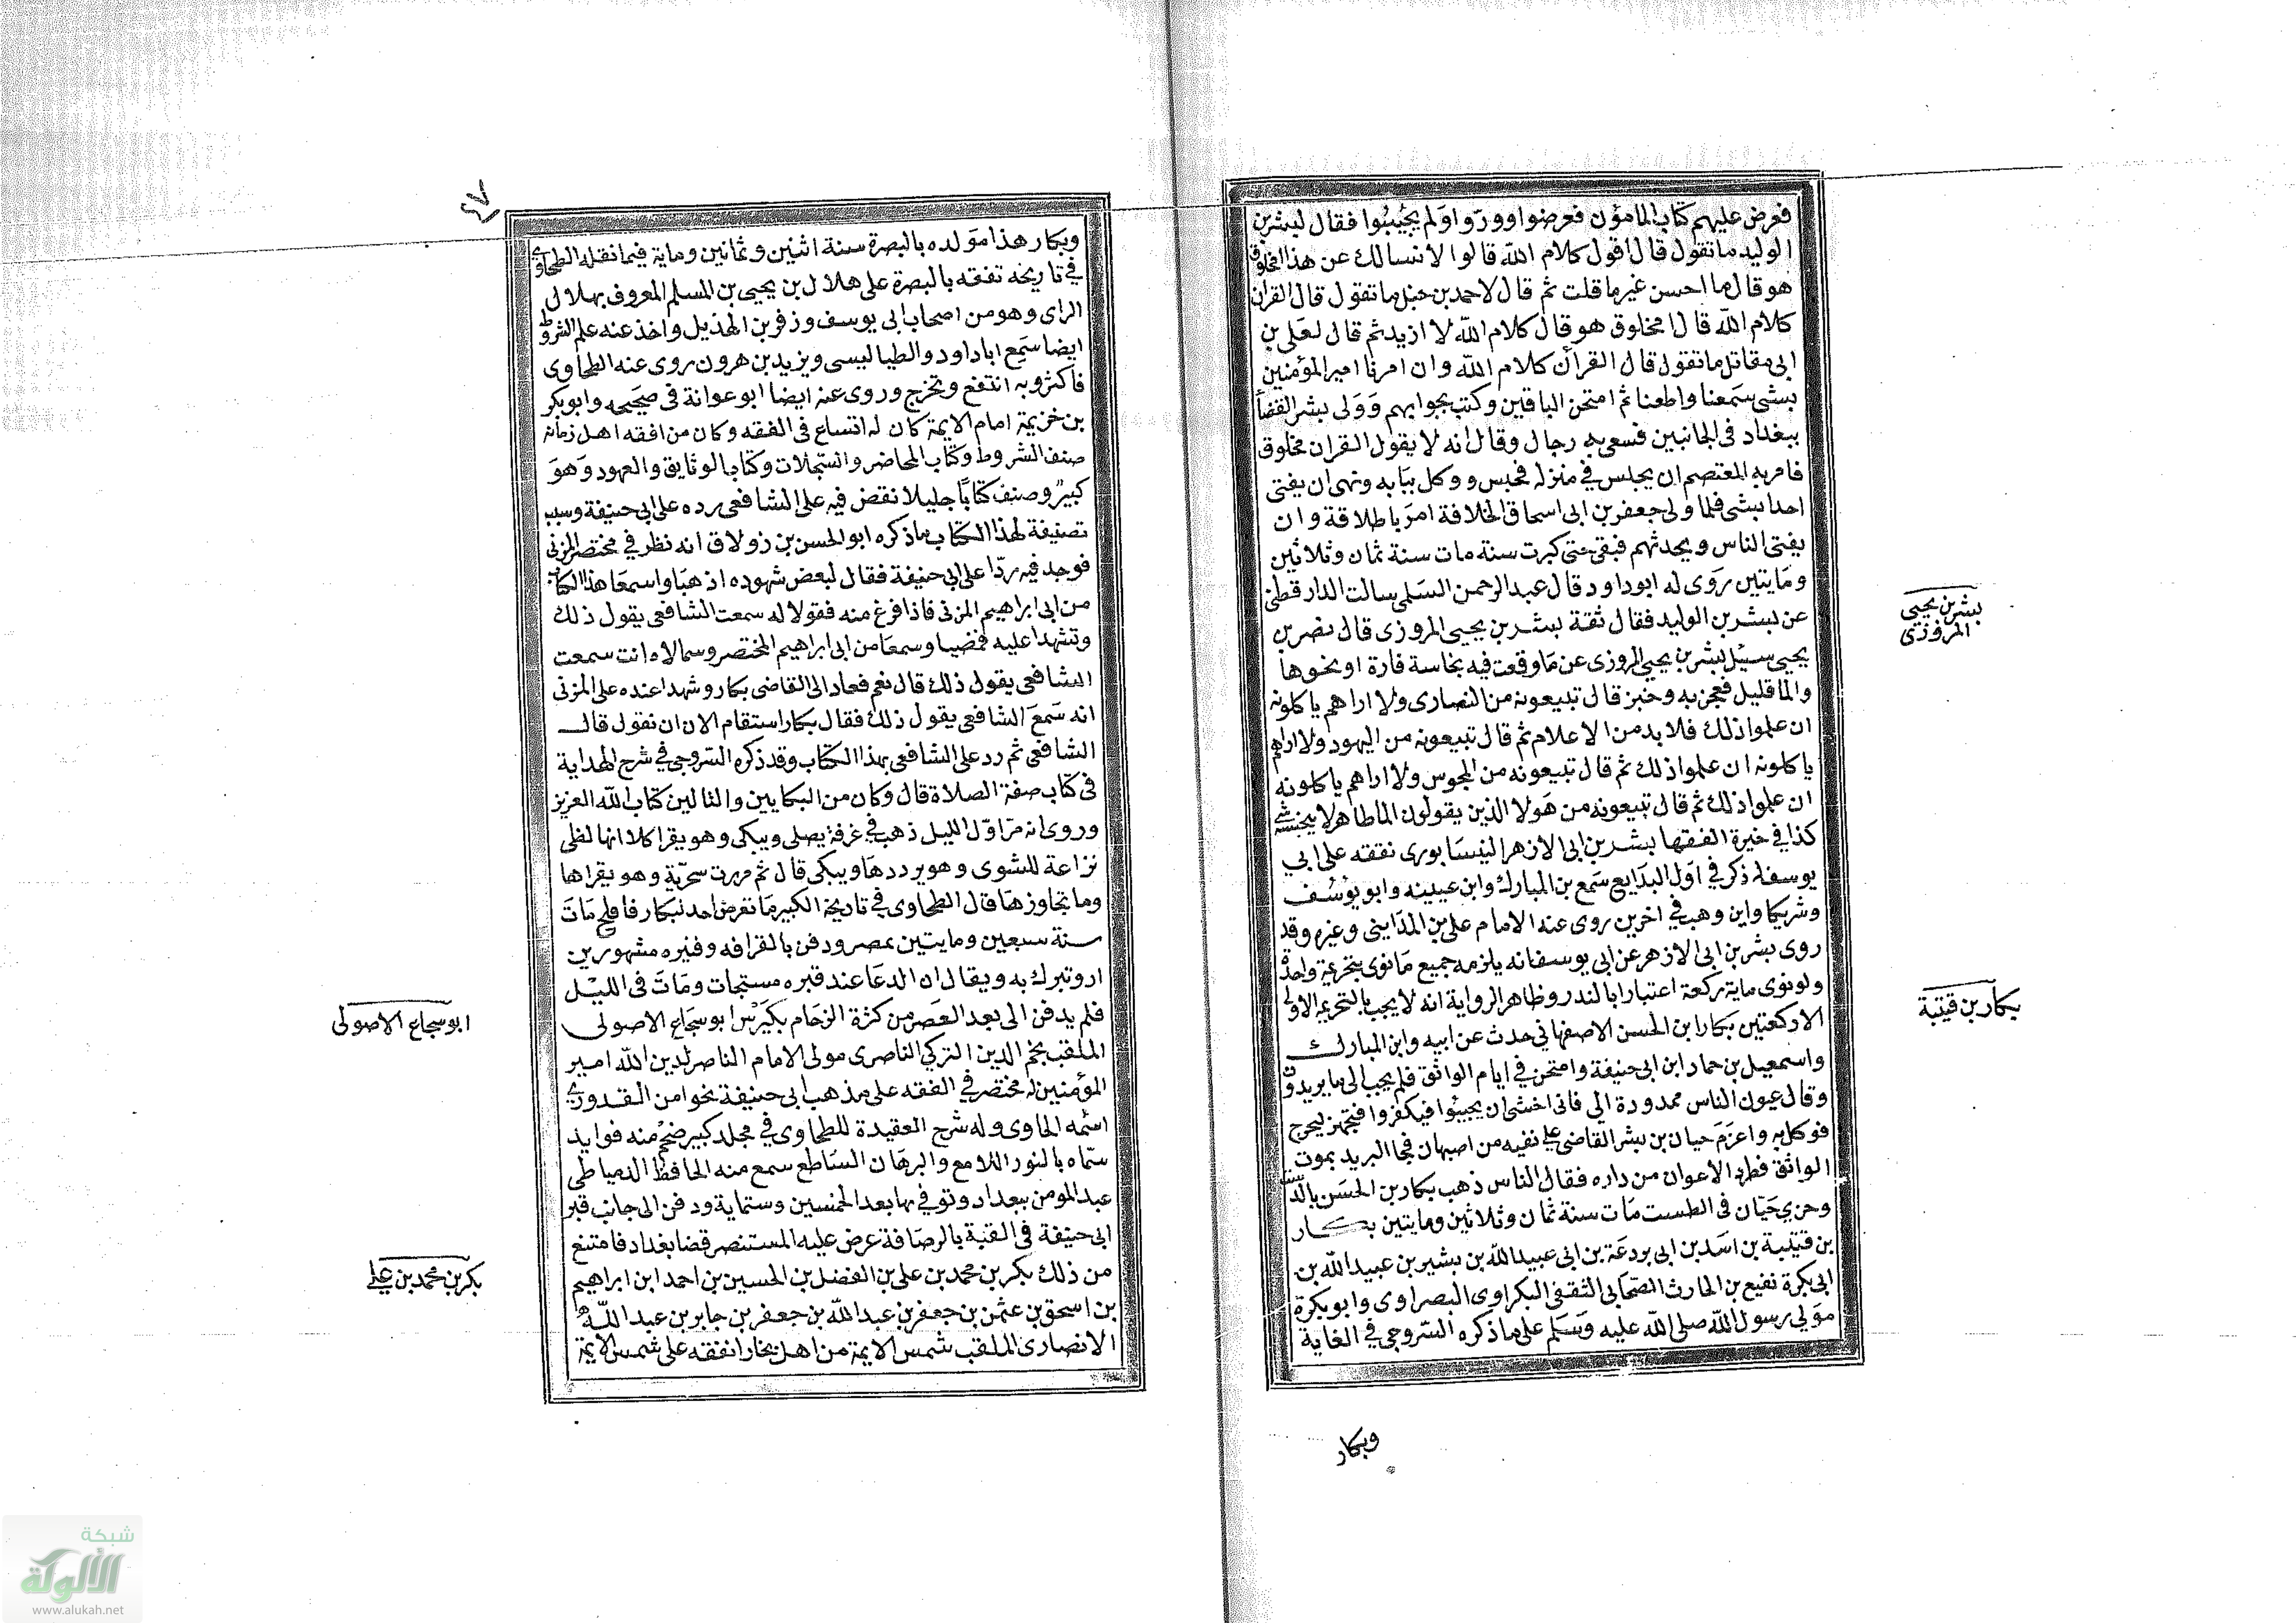 فعرض عليهم كتاب المامؤن فعرضوا وورّوا ولم يجيبُوا فقال لبشر بن
الوليد ما تقول قال اقول كلام الله قالوا لا نسالك عن هذا المخلوق
هو قال ما احسن غير ما قلت ثم قال لاحمد بن حنبل ما تقول قال القران
كلام الله قال امخلوق هو قال كلام الله لا ازيد ثم قال لعلى بن
ابى مقاتل ما تقول قال القرآن كلام الله وان امرنا امير المؤمنين
بشى سمعنا واطعنا ثم امتحن الباقين وكتب بجوابهم وَوَلى بشر القضأ
ببغداد فى الجانبين فسعى به رجال وقال انه لا يقول القران مخلوق
فامر به المعتصم ان يجلس فى منزله فحبس ووكل ببَابه ونهى ان يفتى
احدا بشى فلما ولى جعفر بن ابى اسحاق الخلافة امرَ باطلاقة وان
يفتى الناس ويحدثهم فبقى حتى كبرت سنة مات سنة ثمان وثلاثين
ومَايتين رَوى له ابوداود قال عبد الرحمن السَلمى سالت الدار قطنى
عن بشر بن الوليد فقال ثقة بشر بن يحيى المروزى قال نصر بن
يحيى سئل بشر بن يحيى المروزى عن مَا وقعت فيه نجاسة فارة او نحوها
والما قليل فعجن به وخبز قال تبيعونه من النصارى ولا اراهم ياكلونه
ان علموا ذلك فلا بد من الاعلام ثم قال تبيعونه من اليهود ولا اراهم
ياكلونه ان علموا ذلك ثم قال تبيعونه من المجوس ولا اراهم ياكلونه
ان علموا ذلك ثم قال تبيعونه من هَولا الذين يقولون الماطاهر لا ينجسه شى
كذا فى خيرة الفقها بشر بن ابى الازهر النيسَابورى نفقه على ابى
يوسف له ذكر فى اوَل البدَايع سَمع بن المبارك وابن عيينه وابو يؤسُف
وشريكا واين وهب فى اخرين روى عنه الامام على بن المدَاينى وغيره وقد
روى بشر بن ابى الازهر عن ابى يوسف انه يلزمه جميع مَا نوى بتحريمة واحدة
ولو نوى ماية ركعة اعتبارا بالنذر وظاهر الرواية انه لا يجب بالتحريم الاولى
الاركعتين بكار ابن الحسن الاصفهانى حدث عن ابيه وابن المبارك
واسمعيل بن حماد ابن ابى حنيفة وامتحن فى ايام الواثق فلم يجب الى ما يريدون
وقال عيون الناس ممدودة الي فانى اخشى ان يجيبُوا فيكفروا فتجهز ليخرج
فوكل به واعزمَ حيان بن بشر القاضى على نفيه من اصبهان فجا البريد بموت
الواثق فطرد الاعوان من داره فقال الناس ذهب بكار بن الحسَن بالدست
وحزي حَيّان فى الطست مَات سنة ثمان وثلاثين ومايتين بكــار
بن قتيبة بن اسَد بن ابى بودعَة بن ابى عبيد الله بن بشير بن عبيد الله بن
ابى بكرة نفيع بن الحارث الصّحابى الثقفى البكراوى البصراوى وابو بكرة
مَولى رسول الله صلى الله عليه وَسَلم على ما ذكره السّروجى فى الغاية
بشر بن يحيى
المروزى
بكار بن قتيبة
وبكار
٤٧
وبكار هذا مَولده بالبصرة سنة اثنين وثمانين وماية فيما نقله الطحاوى
فى تاريخه تفقه بالبصرة على هلال بن يحيى بن المسلم المعروف بهلال
الراى وهو من اصحاب ابى يوسف وزفر بن الهذيل واخذ عنه علم الشروط
ايضا سَمع ابا داود والطيالسى ويزيد بن هرون روى عنه الطحاوى
فاكثر وبه انتفع وتخرج وروى عنه ايضا ابو عوانة فى صحيحه وابو بكر
بن خزيمة امام الايمة كان له اتساع فى الفقه وكان من افقه اهل زمانه
صنف الشروط وكتاب المحاضر والسّجلات وكتاب الوثايق والعهود وَهوَ
كبيرٌ وصنف كتابًا جليلا نقض فيه على الشافعى رده على ابى حنيفة وسبب
تصنيفة لهذا الكتاب ما ذكره ابو الحسن بن زولاق انه نظر فى مختصر المزنى
فوجد فيه ردّا على ابى حنيفة فقال لبعض شهوده اذهبَا واسمعَا هذا الكتاب
من ابى ابراهيم المزنى فاذا فرغ منه فقولا له سمعت الشافعى يقول ذلك
وتشهدا عليه فمضيا وسمعَا من ابى ابراهيم المختصر وسالاه انت سمعت
الشافعى يقول ذلك قال نعم فعاد الى القاضى بكار وشهدا عنده على المزنى
انه سَمعَ الشافعى يقول ذلك فقال بكار استقام الان ان نقول قال
الشافعى ثم رد على الشافعى بهذا الكتاب وقد ذكره السّروجى فى شرح الهداية
فى كتاب صفة الصلاة قال وكان من البكايين والتالين كتاب الله العزيز
وروى انه مرّ اوّل الليل ذهب فى غرفة يصلى ويبكى وهو يقرا كلا انها لظى
نزاعة للشوى وهو يرددهَا ويبكى قال ثم مررت سحريّة وهو يقراها
وما تجاوزهَا قال الطحاوى فى تاريخه الكبير مَا تعرض احد لبكار فافلح مَاتَ
سنة سبعين ومايتين بمصر ودفن بالقرافه وقبره مشهور يزن
ار وتبرك به ويقال ان الدعَا عند قبره مستجاب ومَاتَ فى الليْل
فلم يدفن الى بعد العَصر من كثرة الزحَام بكبَرس ابو سجَاع الاصولى
الملقب بخم الدين التركي الناصرى مولى الامام الناصر لدين الله امير
المؤمنين له مختصر فى الفقه على مذهب ابى حنيفة نحوا من القدورى
اسمُه الحاوى وله شرح العقيدة للطحاوى فى مجلد كبير ضخم منه فوايد
سمّاه بالنور اللامع والبرهَان السّاطع سمع منه الحافظ الدمياطى
عبد المومن ببغداد وتوفى بها بعد الخمسين وستماية ودفن الى جانب قبر
ابى حنيفة فى القبة بالرصافة عرض عليه المستنصر قضا بغداد فامتنع
من ذلك بكر بن محمد بن على بن الفضل بن الحسين بن احمد ابن ابراهيم
بن اسحق بن عثمن بن جعفر بن عبد الله بن جعفر بن جابر بن عبد الله
الانصارى الملقب شمس الايمة من اهل بخارا نفقه على شمس الايمة
ابو سجاع الاصولى
بكر بن محمد بن على
شبكة
الألوكة
www.alukah.net